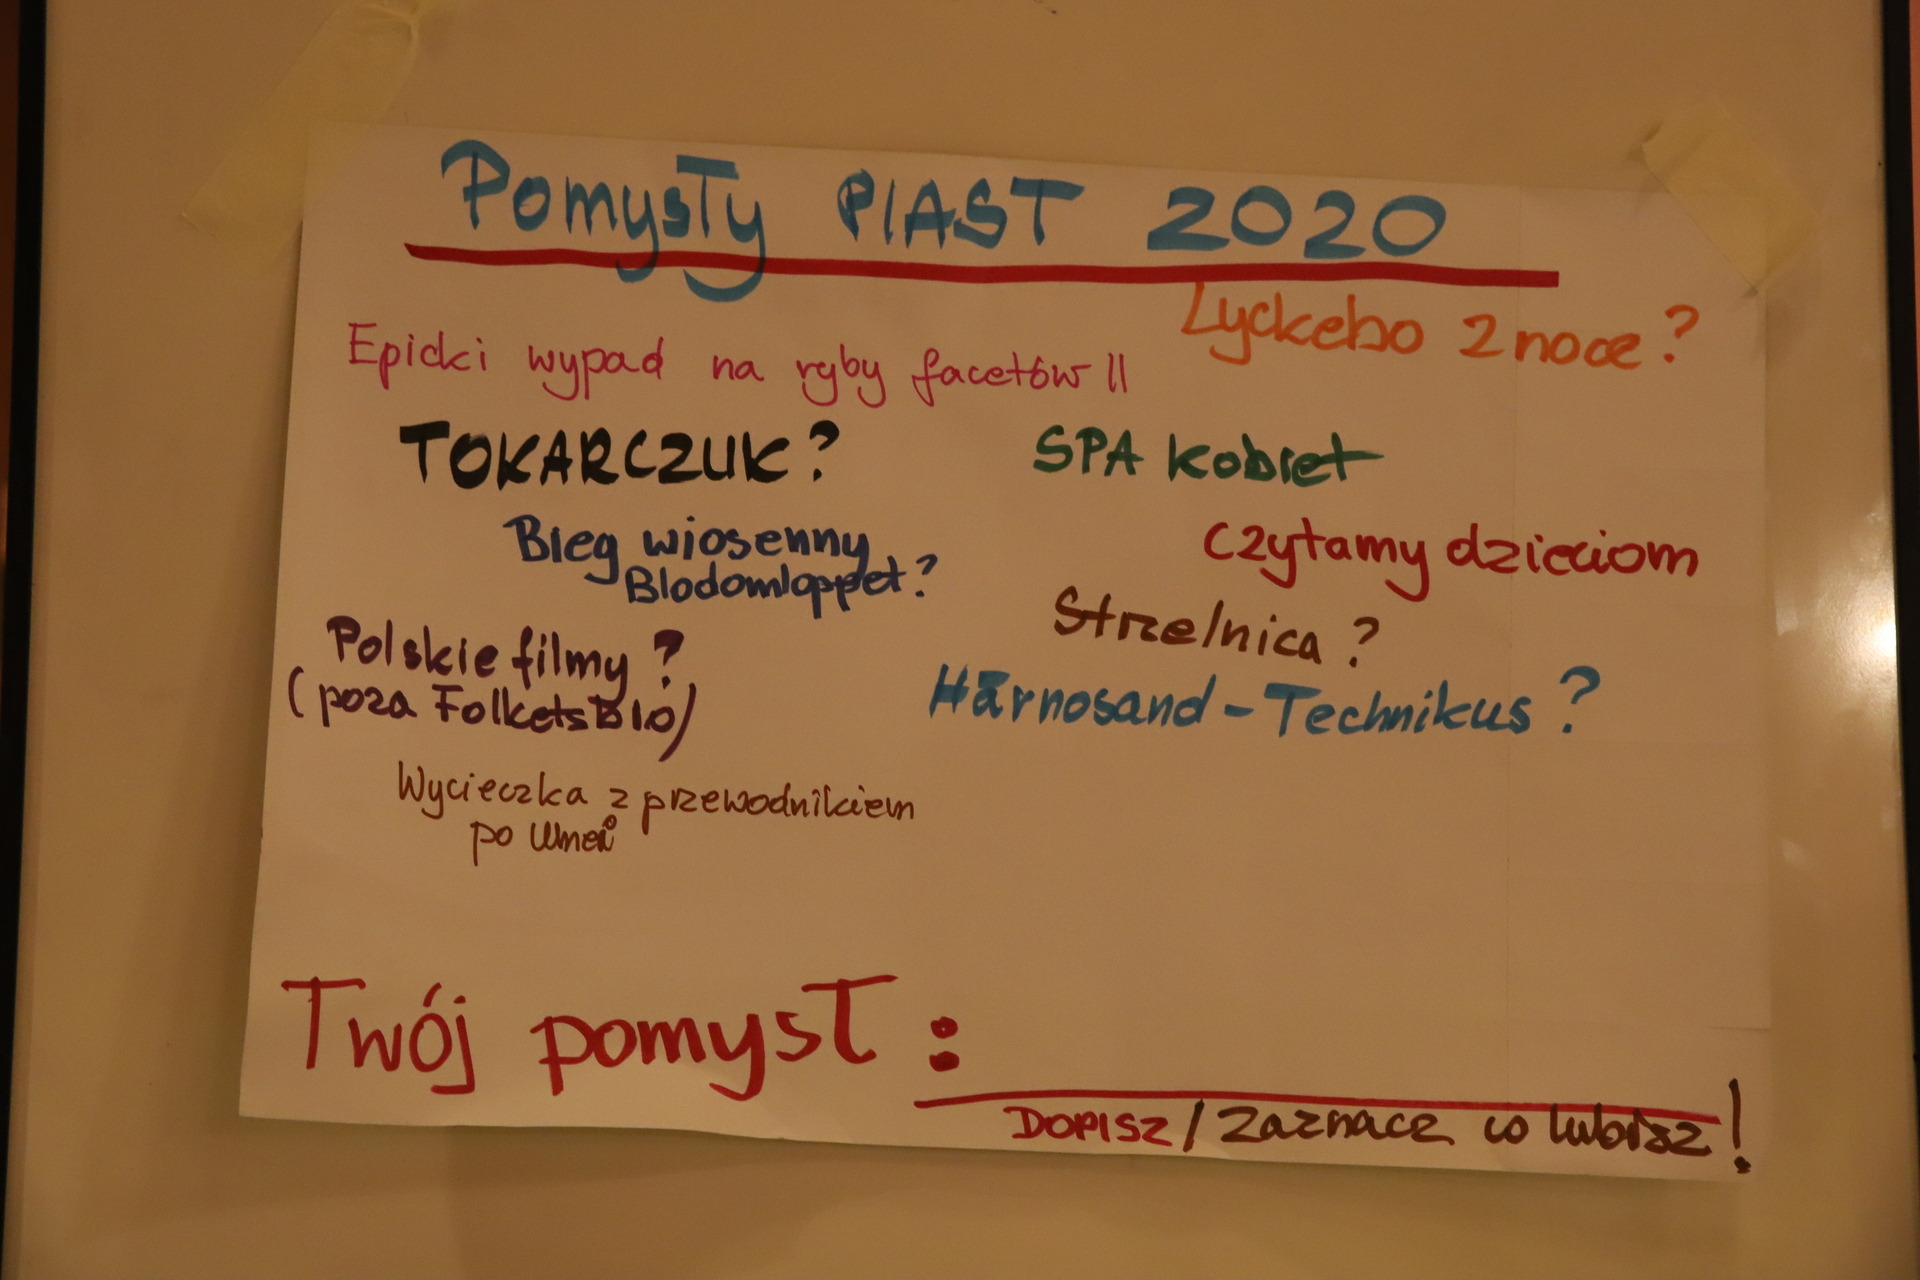 Pomysły PIAST 2020
Lyckebo 2 noce?
Epicki wypad na ryby facetów II
TOKARCZUK?
SPA kobiet
Bieg wiosenny
Blodomloppet?
Czytamy dzieciom
Strzelnica?
Polskie filmy?
(poza Folkets Bio)
Härnosand - Technikus?
Wycieczka z przewodnikiem
po Umeå
Twój pomysł:
DOPISZ / Zaznacz co lubisz!